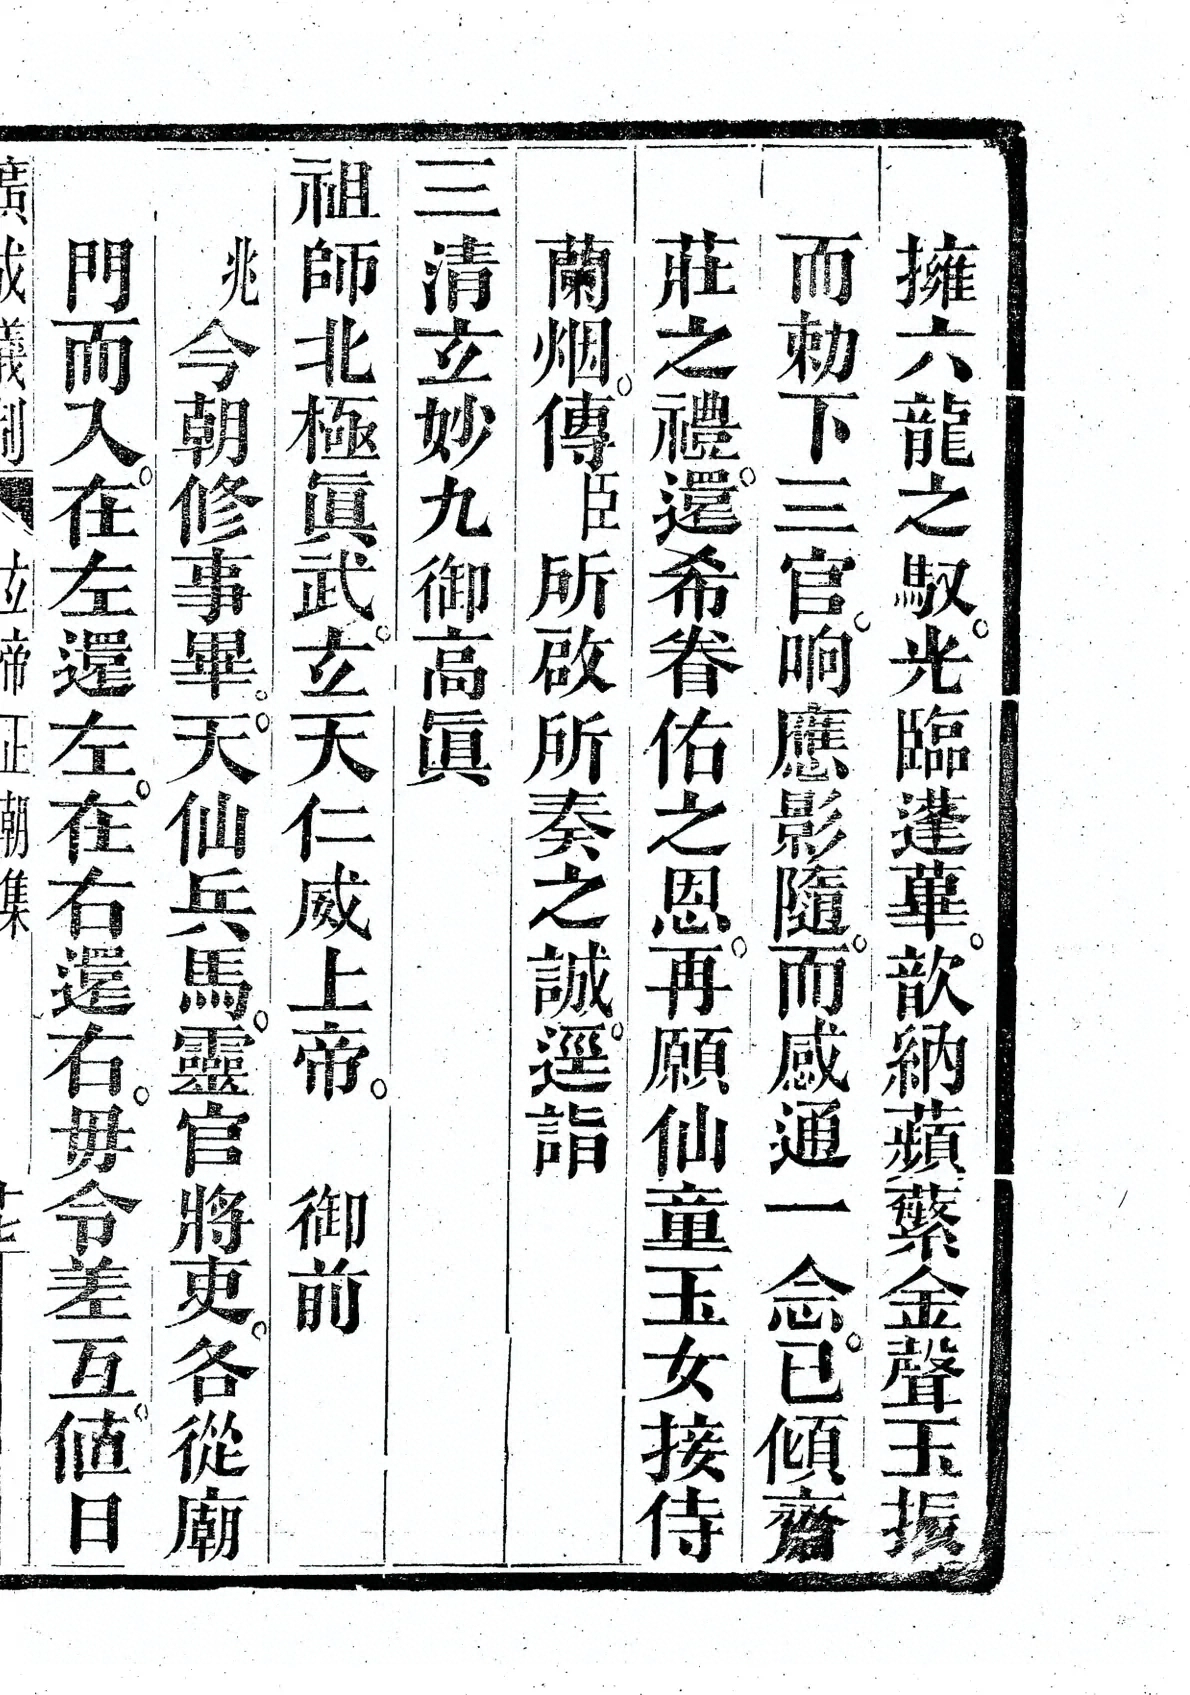 擁六龍之馭。光臨蓬蓽。歆納蘋蘩金聲玉振
而勅下三官。响應影隨。而感通一念。已傾齋
莊之禮。還希眷佑之恩。再願仙童玉女接侍
蘭烟。傳臣所啟所奏之誠。逕詣
三清玄妙九御高眞
祖師北極眞武。玄天仁威上帝。　御前
兆今朝修事畢。天仙兵馬。靈官將吏。各從廟
門而入。在左還左。在右還右。毋令差互。値日
廣成儀制　玄帝正朝集　十七